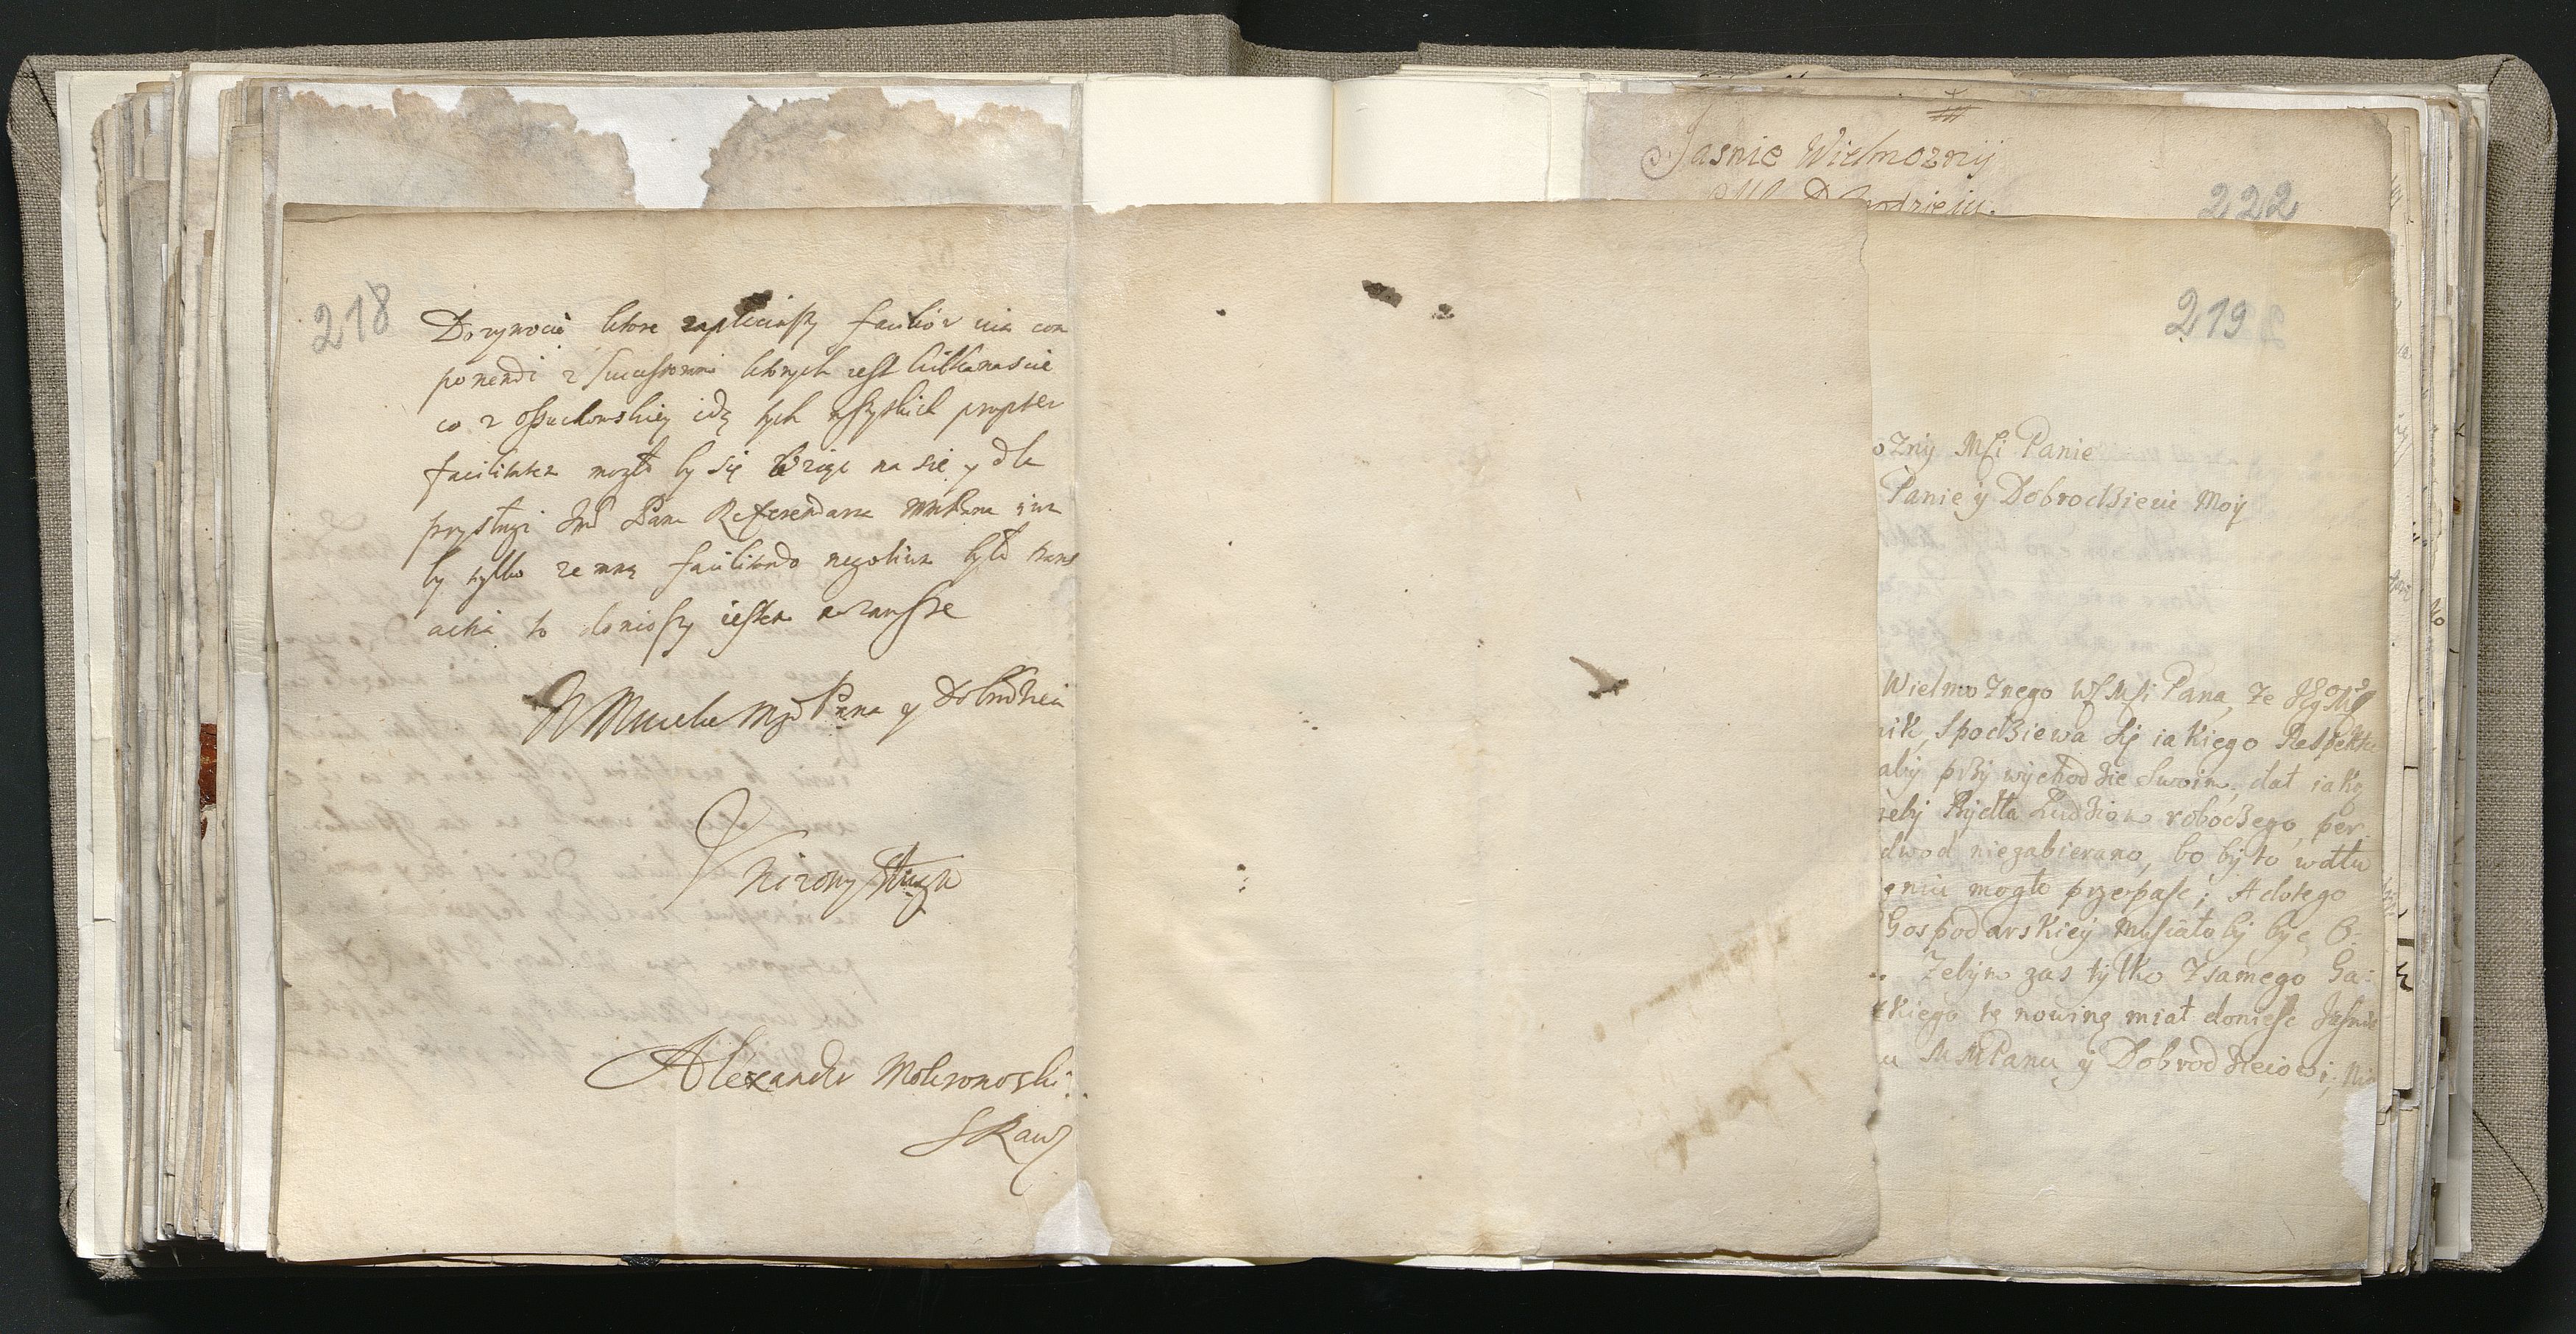 218
Dozywocie ktore zaplaciwszy facilior via com
ponendi z Successorami ktorych iest kilkanascie
co z Ossuchowskiey idą tych wszystkich propter
facilitatem mogło by się wziąc na się y dla
przysługi Jmć Pana Referendarza
by tylko ze mną facilitando negotium była trans
actia to donioszy iestem zawsze
Pana y Dobrodzieia
Nizony sługa
Alexander Mokronoski
SRaw
Jasnie Wielmozny
222
219
ozny Msci Panie
Panie y Dobrodzieiu Moy
Wielmoznego WMsci Pana, ze
nik, spodziewa się iakiego Respektu
aby przy wychodzie swoim, dał iaką
zeby Bydła Ludziom roboczego, per
dwod niezabierano, bo by to wdłu
gniu mogło przepasc; A dotego
Gospodarskiey musiało by byc O:
Zebym zas tylko z samego Ga:
skiego tę nowinę miał doniesc Jasnie
u MMPanu y Dobrodzieiowi, Nie